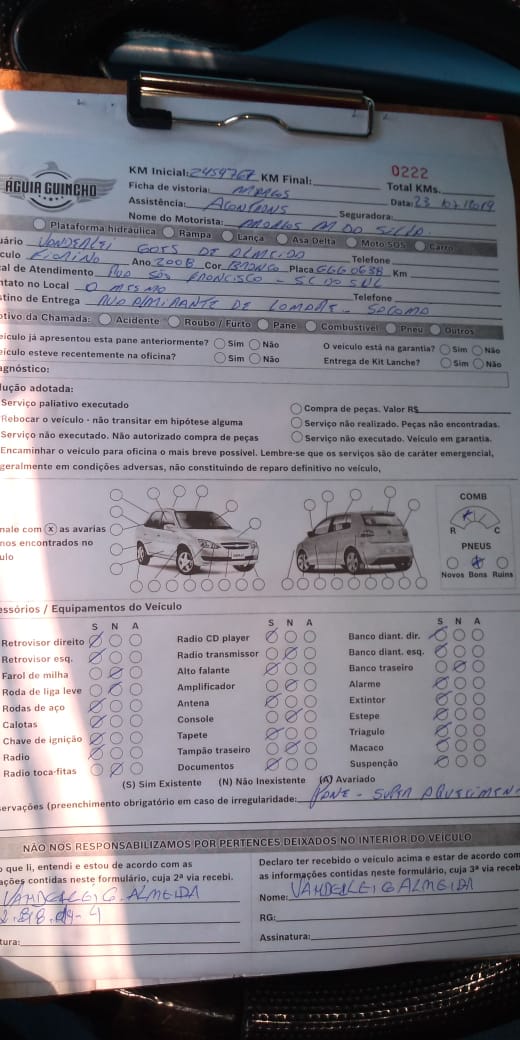 ÁGUIA GUINCHO
KM Inicial: 2459767 KM Final:
0222
Ficha de vistoria: Total KMs.
Assistência: Data: 23 10 / 2019
Nome do Motorista: Seguradora:
Plataforma hidráulica Rampa Lança Asa Delta Moto SOS Carro
ário VANDERLEI GOES DE ALMEIDA Telefone
culo FIORINO Ano 2008 Cor BRANCO Placa Km
al de Atendimento RUA SÃO FRANCISCO - SC DO SUL
ntato no Local O MESMO Telefone
stino de Entrega
otivo da Chamada: Acidente Roubo / Furto Pane Combustível Pneu Outros
eículo já apresentou esta pane anteriormente? Sim Não O veículo está na garantia? Sim Não
eículo esteve recentemente na oficina? Sim Não Entrega de Kit Lanche? Sim Não
agnóstico:
lução adotada:
Serviço paliativo executado Compra de peças. Valor R$
Rebocar o veículo - não transitar em hipótese alguma Serviço não realizado. Peças não encontradas.
Serviço não executado. Não autorizado compra de peças Serviço não executado. Veículo em garantia.
Encaminhar o veículo para oficina o mais breve possível. Lembre-se que os serviços são de caráter emergencial,
geralmente em condições adversas, não constituindo de reparo definitivo no veículo,
nale com (x) as avarias
nos encontrados no
ulo
COMB
R C
PNEUS
Novos Bons Ruins
essórios / Equipamentos do Veículo
S N A S N A S N A
Retrovisor direito Radio CD player Banco diant. dir.
Retrovisor esq. Radio transmissor Banco diant. esq.
Farol de milha Alto falante Banco traseiro
Roda de liga leve Amplificador Alarme
Rodas de aço Antena Extintor
Calotas Console Estepe
Chave de ignição Tapete Triagulo
Radio Tampão traseiro Macaco
Radio toca-fitas Documentos Suspenção
(S) Sim Existente (N) Não Inexistente (A) Avariado
servações (preenchimento obrigatório em caso de irregularidade: PANE - SUPER AQUECIMEN
NÃO NOS RESPONSABILIZAMOS POR PERTENCES DEIXADOS NO INTERIOR DO VEÍCULO
o que li, entendi e estou de acordo com as
ações contidas neste formulário, cuja 2ª via recebi.
VANDERLEI G. ALMEIDA
tura:
Declaro ter recebido o veículo acima e estar de acordo com
as informações contidas neste formulário, cuja 3ª via receb
Nome: VANDERLEI G ALMEIDA
RG:
Assinatura: